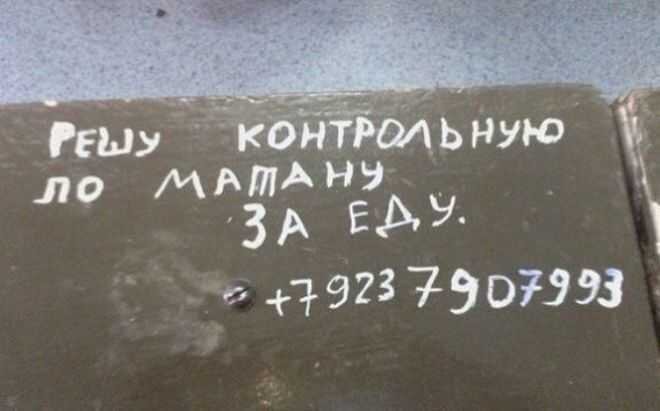 РЕШУ КОНТРОЛЬНУЮ
ПО МАТАНУ
ЗА ЕДУ.
+7 923 7907993